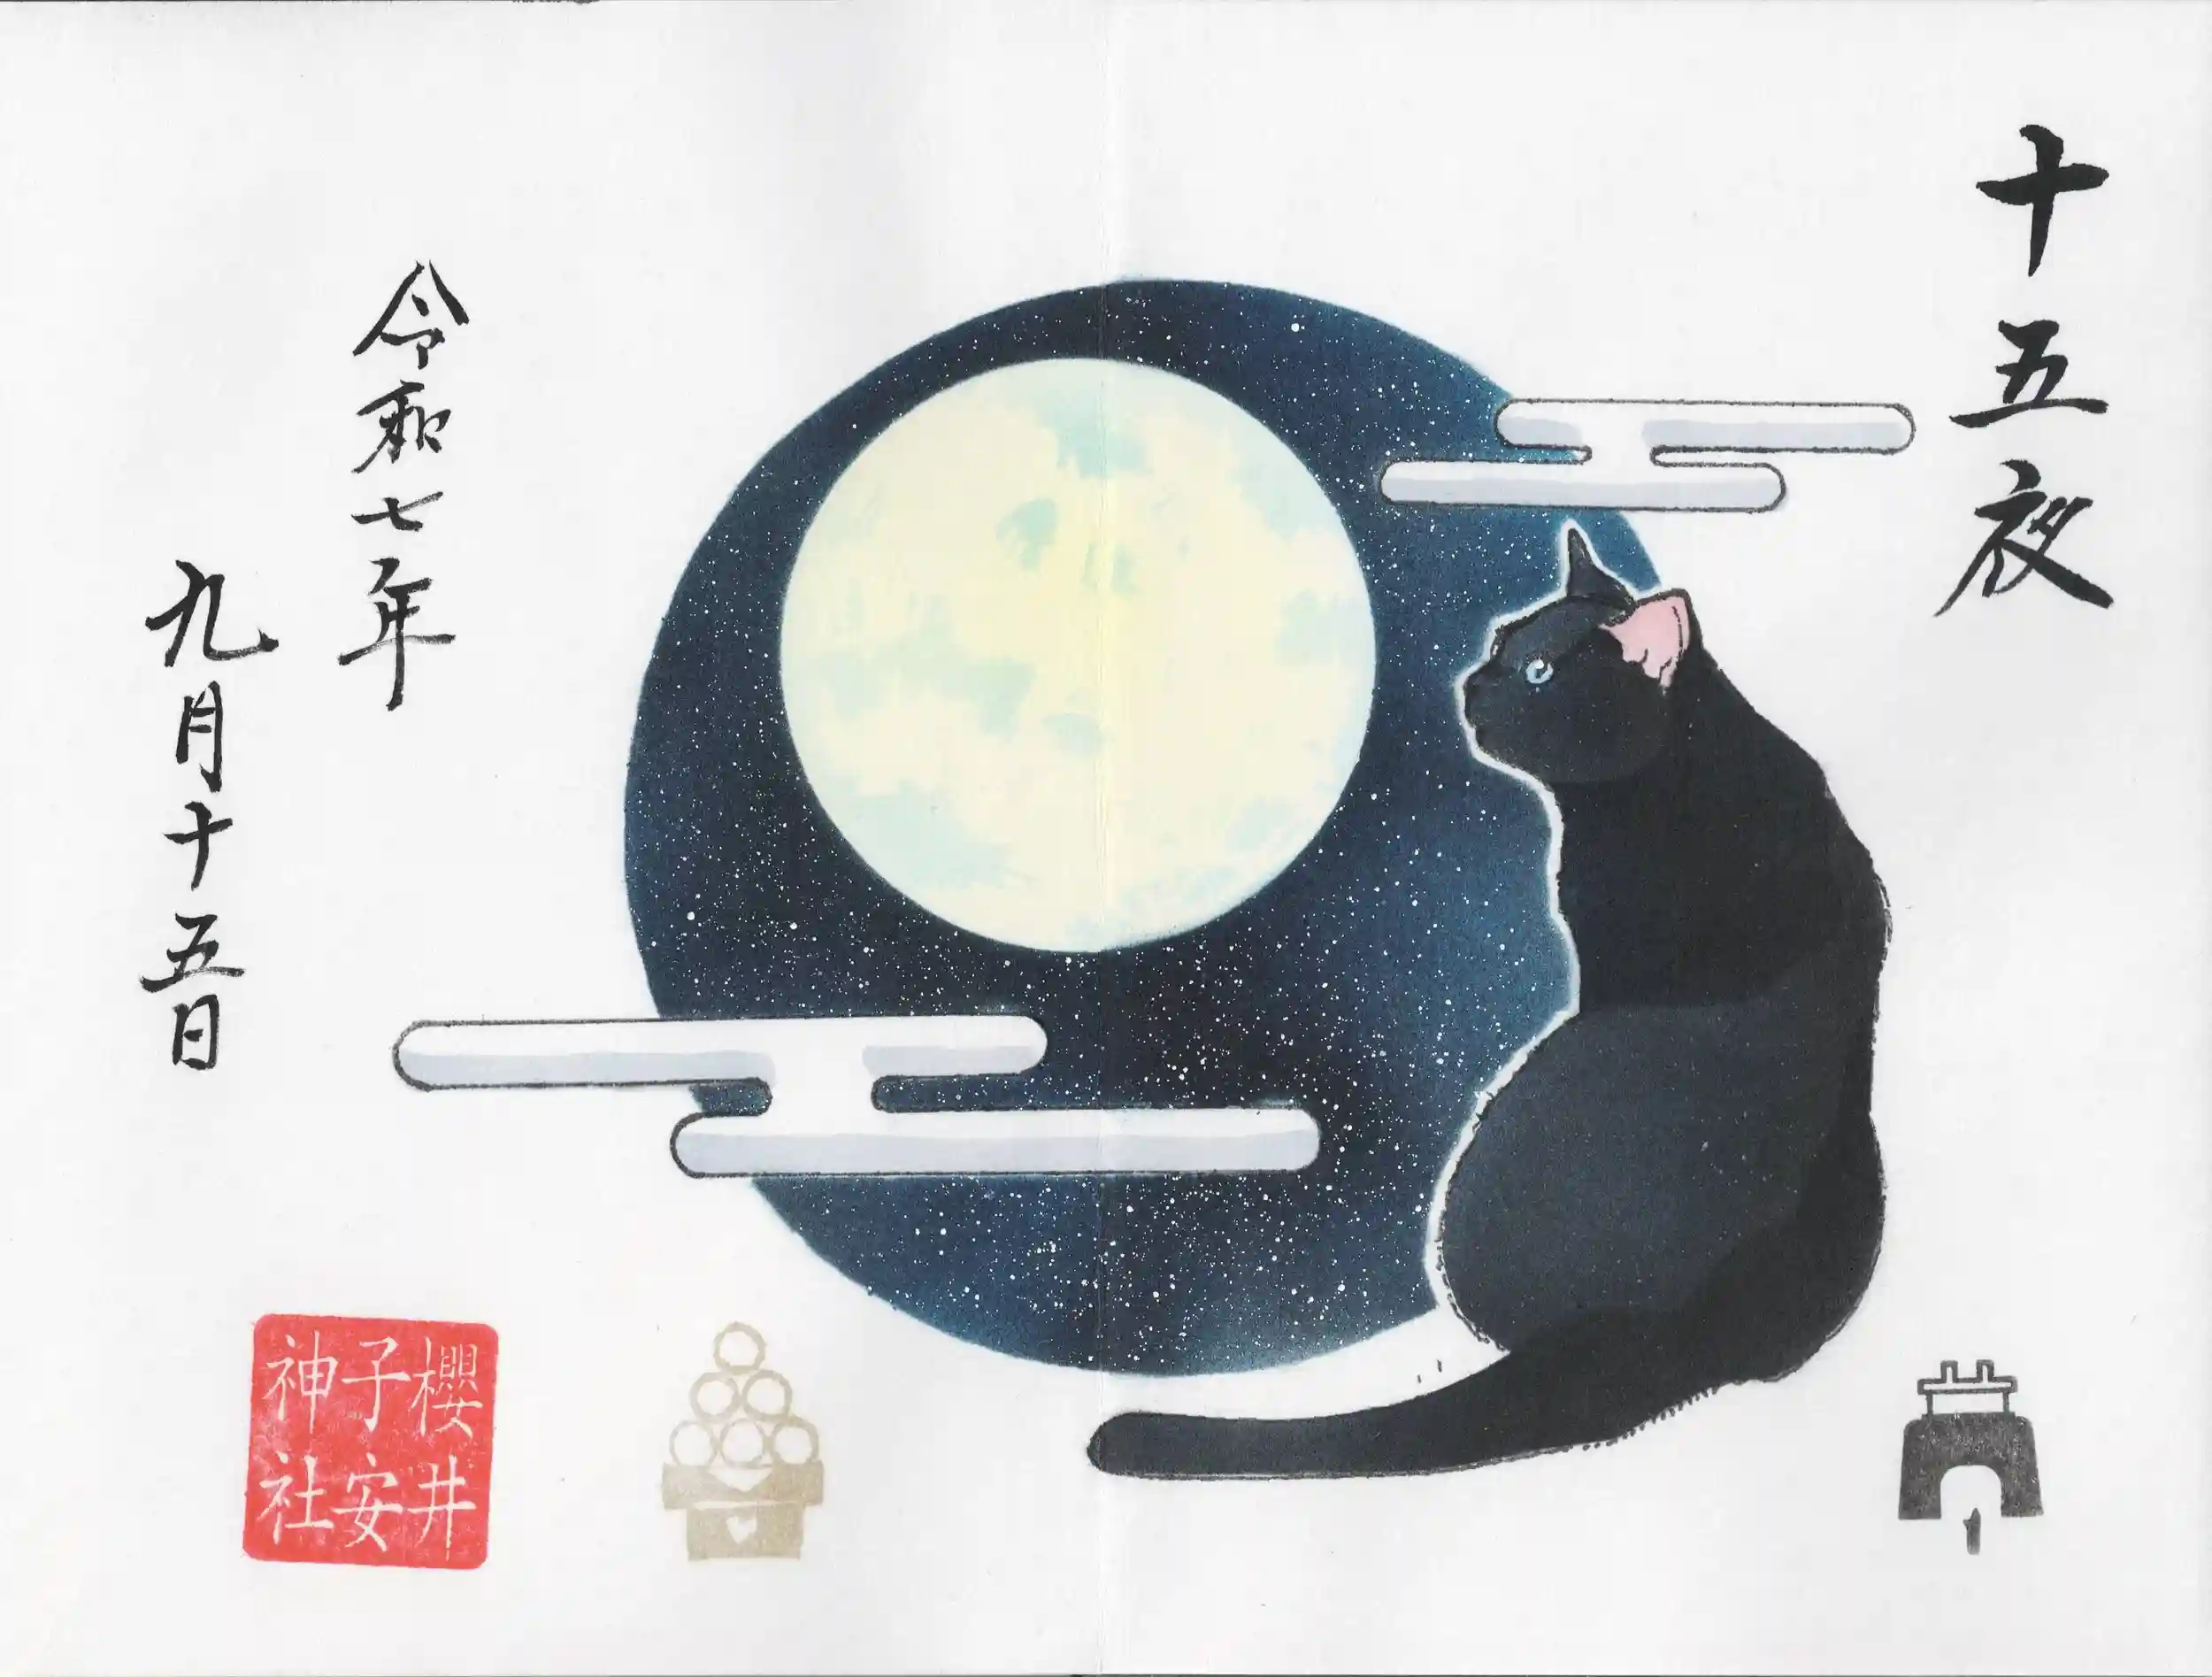 十五夜
令和七年
九月十五日
櫻井
子安
神社